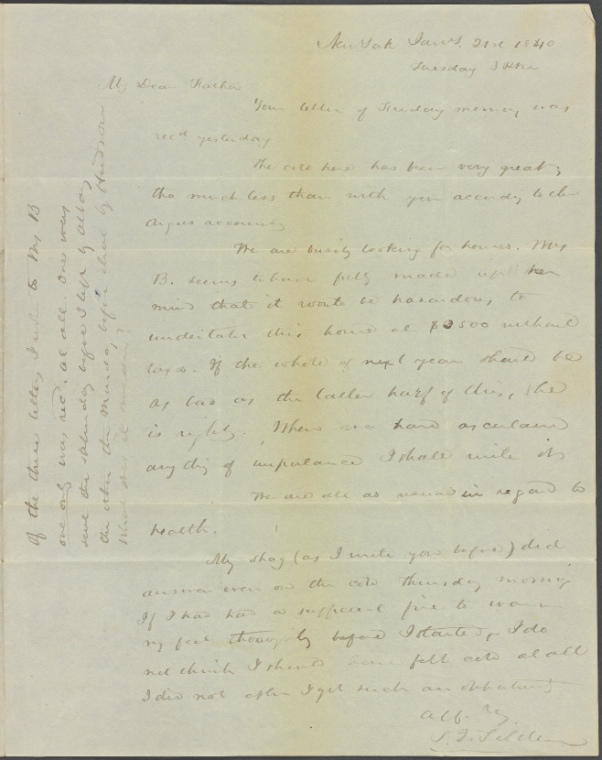 New York Jany. 21st 1840
Tuesday 3 P.M.
My Dear Father
Your letter of Sunday morning was
recd yesterday
The cold here has been very great,
tho much less than with you according to the
Argus accounts
We are busily looking for houses. Mrs
B. seems to have fully made up her
mind that it would be hazardous to
undertake this house at $2500 without
taxes. If the whole of next year should be
as bad as the latter half of this, she
is right. When we have ascertained
any thing of importance I shall write it
We are all as usual in regard to
health.
My shag (as I wrote you before) did
answer even on the cold thursday morning
If I had had a sufficient fire to warm
my feet thoroughly before I started, I do
not think I should have felt cold at all
I did not often get such an opportunity
Aff. Yrs.
S. J. Tilden
Of the three letters I wrote to Mrs B
one only was recd. at all. One was
sent the Saturday before I left by Albany
the other the Monday before that by Hudson